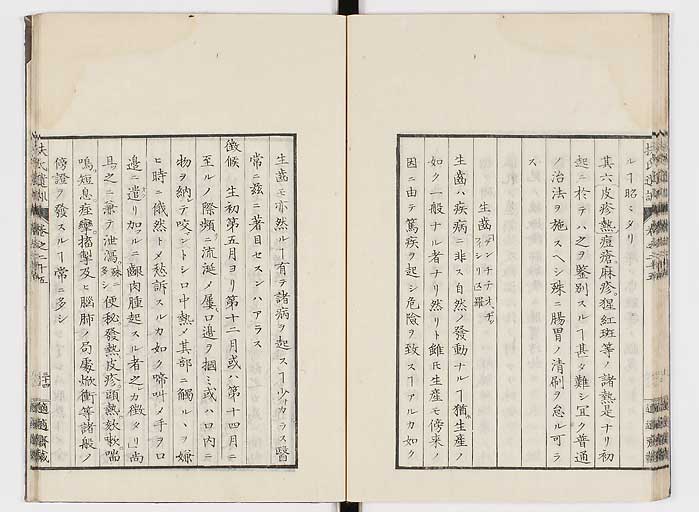 ルヿ昭々タリ
其六皮疹熱痘瘡麻疹猩紅斑等ノ諸熱是ナリ初
起ニ於テハ之ヲ鑒別スルヿ甚タ難シ宜ク普通
ノ治法ヲ施スヘシ殊ニ腸胃ノ清刷ヲ怠ル可ラ
ス
生齒
生齒ハ疾病ニ非ス自然ノ發動ナルヿ猶生産ノ
如ク一般ナル者ナリ然リト雖𪜈生産モ傍来ノ
因ニ由テ篤疾ヲ起シ危險ヲ致スヿアルカ如ク
生齒モ亦然ルヿ有テ諸病ヲ起スヿ少カラス醫
常ニ玆ニ著目セスンハアラス
徴候 生初第五月ヨリ第十二月或ハ第十四月ニ
至ルノ際頻ニ流涎メ屢口邉ヲ摑ミ或ハ口内ニ
物ヲ納テ咬ントシ口中熱メ其部ニ觸ルヽヲ嫌
ヒ時ニ俄然トメ愁訴スルカ如ク啼叫メ手ヲ口
邉ニ遣リ加ルニ齗肉腫起スル者之カ徴タリ尚
且之ニ兼テ泄瀉殊ニ多シ便秘發熱皮疹頭熱欬嗽喘
鳴短息痙攣搐掣及ヒ腦肺ノ局處焮衝等諸般ノ
傍證ヲ發スルヿ常ニ多シ
扶氏遺訓 卷之二十五 三十四 適適齋藏